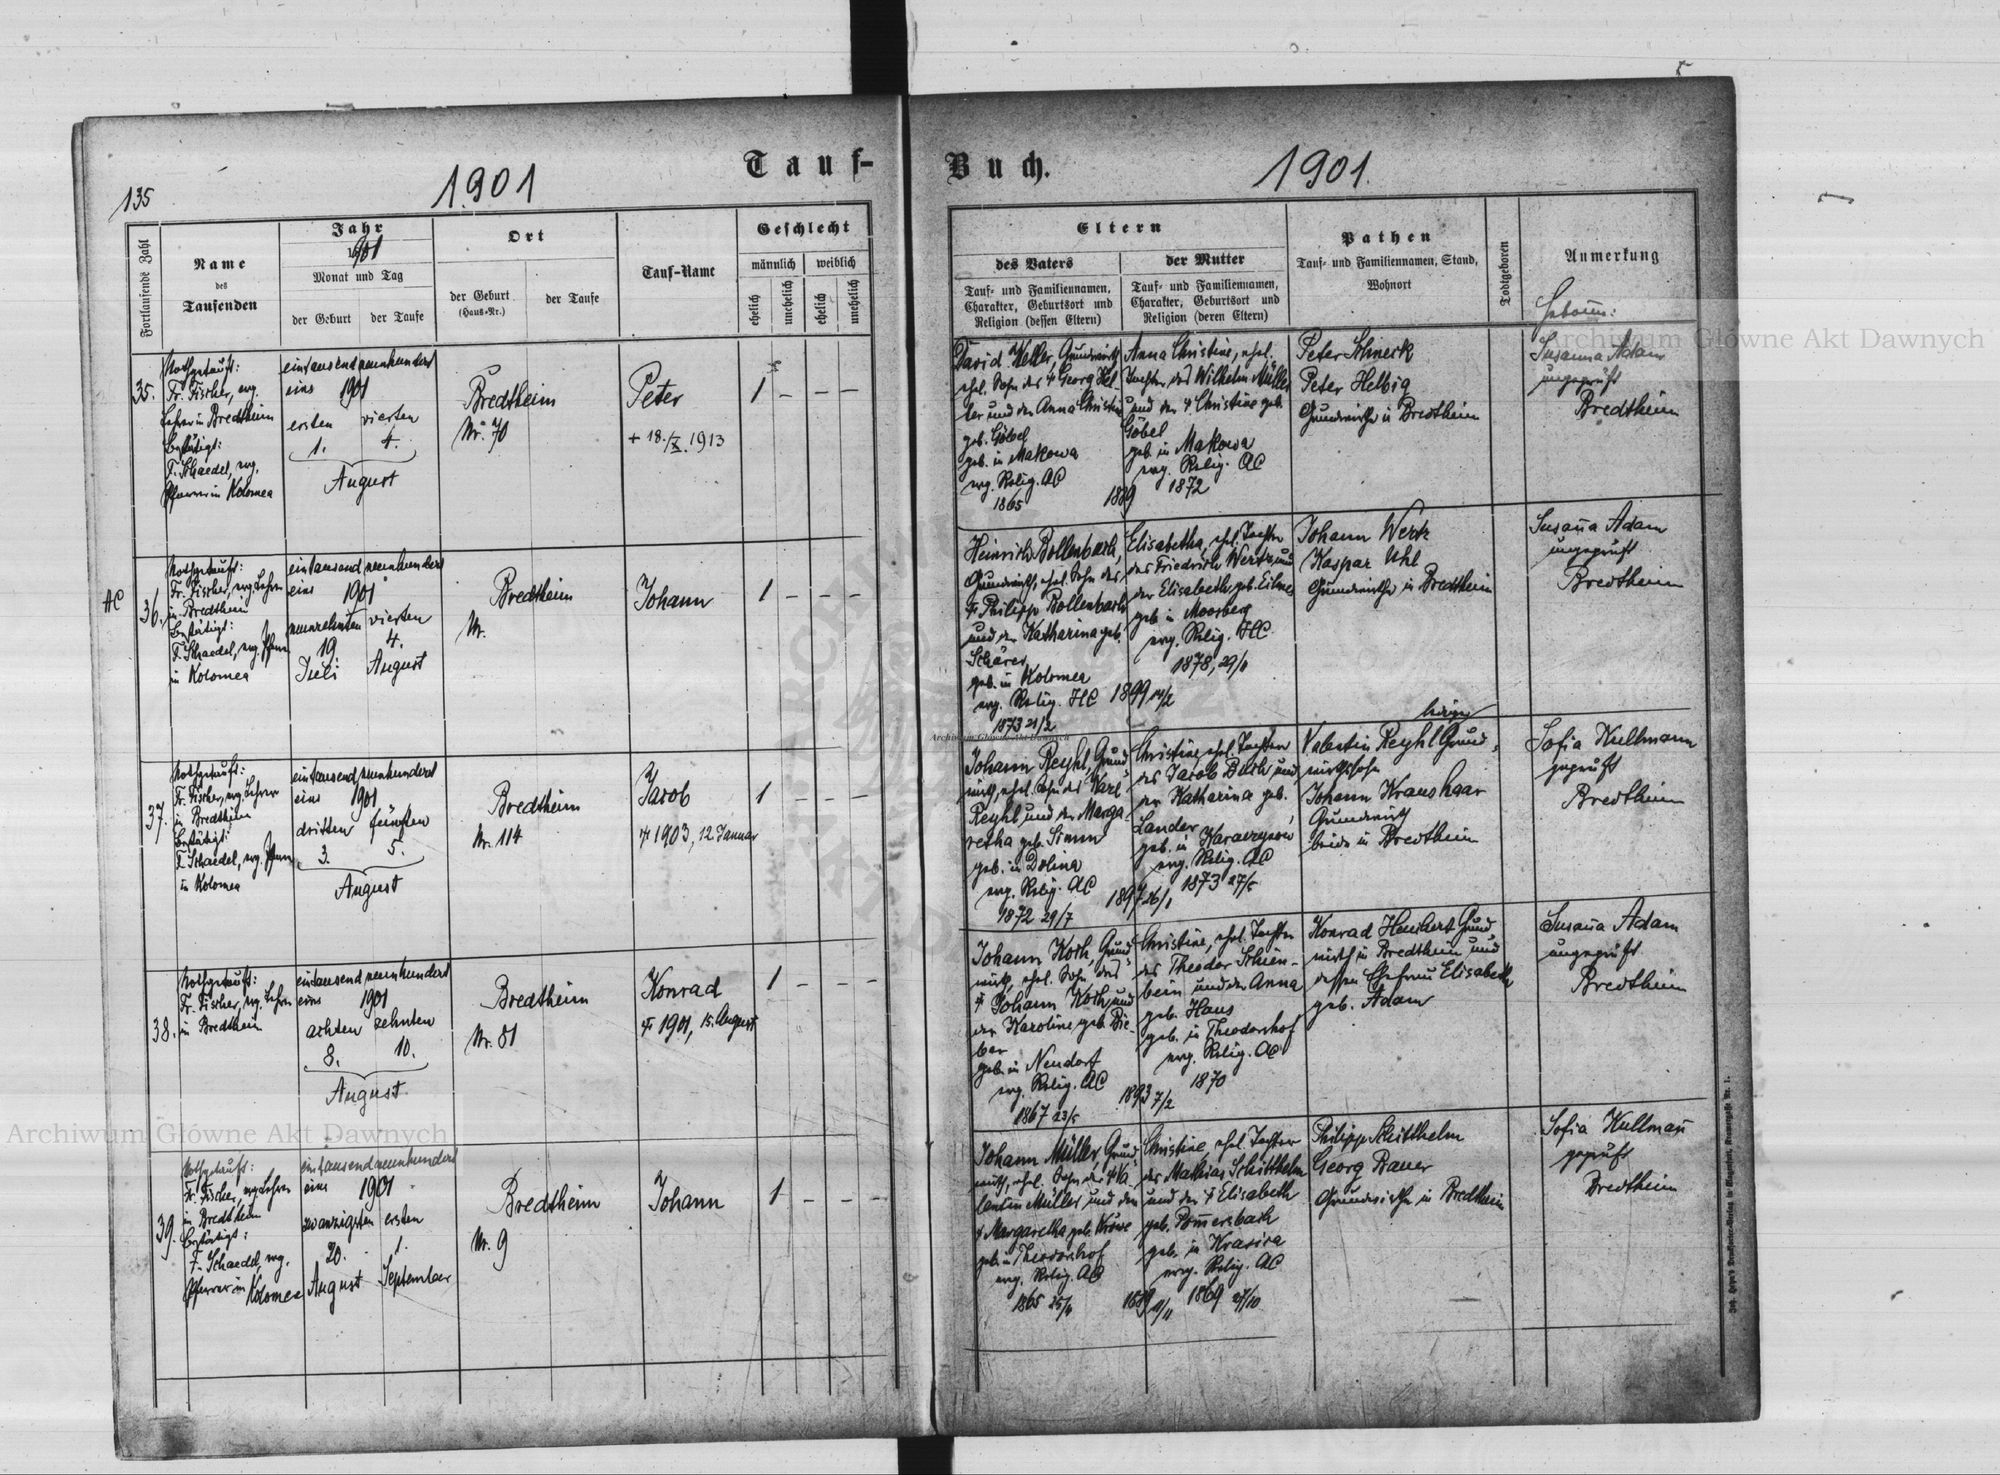 135
1901
Tauf-
Fortlaufende Zahl
Name
des
Taufenden
Jahr
1901
Monat und Tag
der Geburt
der Taufe
Ort
der Geburt
(Haus-Nr.)
der Taufe
Tauf-Name
Geschlecht
männlich
weiblich
ehelich
unehelich
ehelich
unehelich
35.
Nothgetauft:
Fr. Fischer, evg.
Lehrer in Bredtheim
Bestätigt:
F. Schaedel, evg.
Pfarrer in Kolomea
eintausendneunhundert
eins 1901
ersten vierten
1. 4.
August
Bredtheim
Nr. 70
Peter
+ 18./X. 1913
1 – – –
HC
36.
Nothgetauft:
Fr. Fischer, evg. Lehrer
in Bredtheim
Bestätigt:
F. Schaedel, evg. Pfarrer
in Kolomea
eintausendneunhundert
eins 1901
neunzehnten vierten
19 4.
Juli August
Bredtheim
Nr.
Johann
1 – – –
37.
Nothgetauft:
Fr. Fischer, evg. Lehrer
in Bredtheim
Bestätigt:
F. Schaedel, evg. Pfarrer
in Kolomea
eintausendneunhundert
eins 1901
dritten fünften
3. 5.
August
Bredtheim
Nr. 114
Jacob
+ 1903, 12 Januar
1 – – –
38.
Nothgetauft:
Fr. Fischer, evg. Lehrer
in Bredtheim
eintausendneunhundert
eins 1901
achten zehnten
8. 10.
August
Bredtheim
Nr. 81
Konrad
+ 1901, 15. August
1 – – –
39.
Nothgetauft:
Fr. Fischer, evg. Lehrer
in Bredtheim
Bestätigt:
F. Schaedel, evg.
Pfarrer in Kolomea
eintausendneunhundert
eins 1901
zwanzigsten ersten
20. 1.
August September
Bredtheim
Nr. 9
Johann
1 – – –
Buch.
1901.
Eltern
des Vaters
Tauf- und Familiennamen,
Charakter, Geburtsort und
Religion (dessen Eltern)
der Mutter
Tauf- und Familiennamen,
Charakter, Geburtsort und
Religion (deren Eltern)
Pathen
Tauf- und Familiennamen, Stand,
Wohnort
Todtgeboren
Anmerkung
David Weller, Grundwirth
ehel. Sohn des + Georg Wel
ler und der Anna Christine
geb. Göbel
geb. in Makowa
evg. Relig. AC
1865
1889
Anna Christine, ehel.
Tochter des Wilhelm Müller
und der + Christine geb.
Göbel
geb. in Makowa
evg. Relig. AC
1872
Peter Schneck
Peter Helbig
Grundwirthe in Bredtheim
Hebamme:
Susanna Adam
ungeprüft
Bredtheim
Heinrich Bollenbach,
Grundwirth, ehel. Sohn des
+ Philipp Bollenbach
und der Katharina geb.
Schärer
geb. in Kolomea
evg. Relig. HC
1873 21/2
1899 14/2
Elisabetha, ehel. Tochter
des Friedrich Wertz und
der Elisabeth geb.
geb. in Moosberg
evg. Relig. HC
1878,
Johann Werk
Kaspar Uhl
Grundwirthe in Bredtheim
Susana Adam
ungeprüft
Bredtheim
Johann Reyhl, Grund
wirth, ehel. Sohn des Karl
Reyhl und der Marga
retha geb. Simm
geb. in Dolina
evg. Relig. AC
1872 29/7
1897 26/1
Christine, ehel. Tochter
des Jacob Busch und
der Katharina geb.
Lander
geb. in
evg. Relig. AC
1873 27/5
lediger
Valentin Reyhl Grund
wirthssohn
Johann Kraushaar
Grundwirth
beide in Bredtheim
Sofia Kullmann
geprüft
Bredtheim
Johann Koth, Grund
wirth, ehel. Sohn des
+ Johann Koth und
der Karoline geb. Bie-
ber
geb. in Neudorf
evg. Relig. AC
1867 23/5
1893 7/2
Christine, ehel. Tochter
des Theodor Schien-
bein und der Anna
geb. Haus
geb. in Theodorshof
evg. Relig. AC
1870
Konrad Heuchert Grund
wirth in Bredtheim und
dessen Ehefrau Elisabeth
geb. Adam
Susana Adam
ungeprüft
Bredtheim
Johann Müller, Grund
wirth, ehel. Sohn des + Va
lentin Müller und der
+ Margaretha geb.
geb. in Theodorshof
evg. Relig. AC
1865
1889 11/11
Christine, ehel. Tochter
des Mathias Schitthelm
und der + Elisabeth
geb. Pomersbach
geb. in Krasica
evg. Relig. AC
1869 27/10
Philipp Schitthelm
Georg Bauer
Grundwirthe in Bredtheim
Sofia Kullman
geprüft
Bredtheim
Archiwum Główne Akt Dawnych
Archiwum Główne Akt Dawnych
Archiwum Główne Akt Dawnych